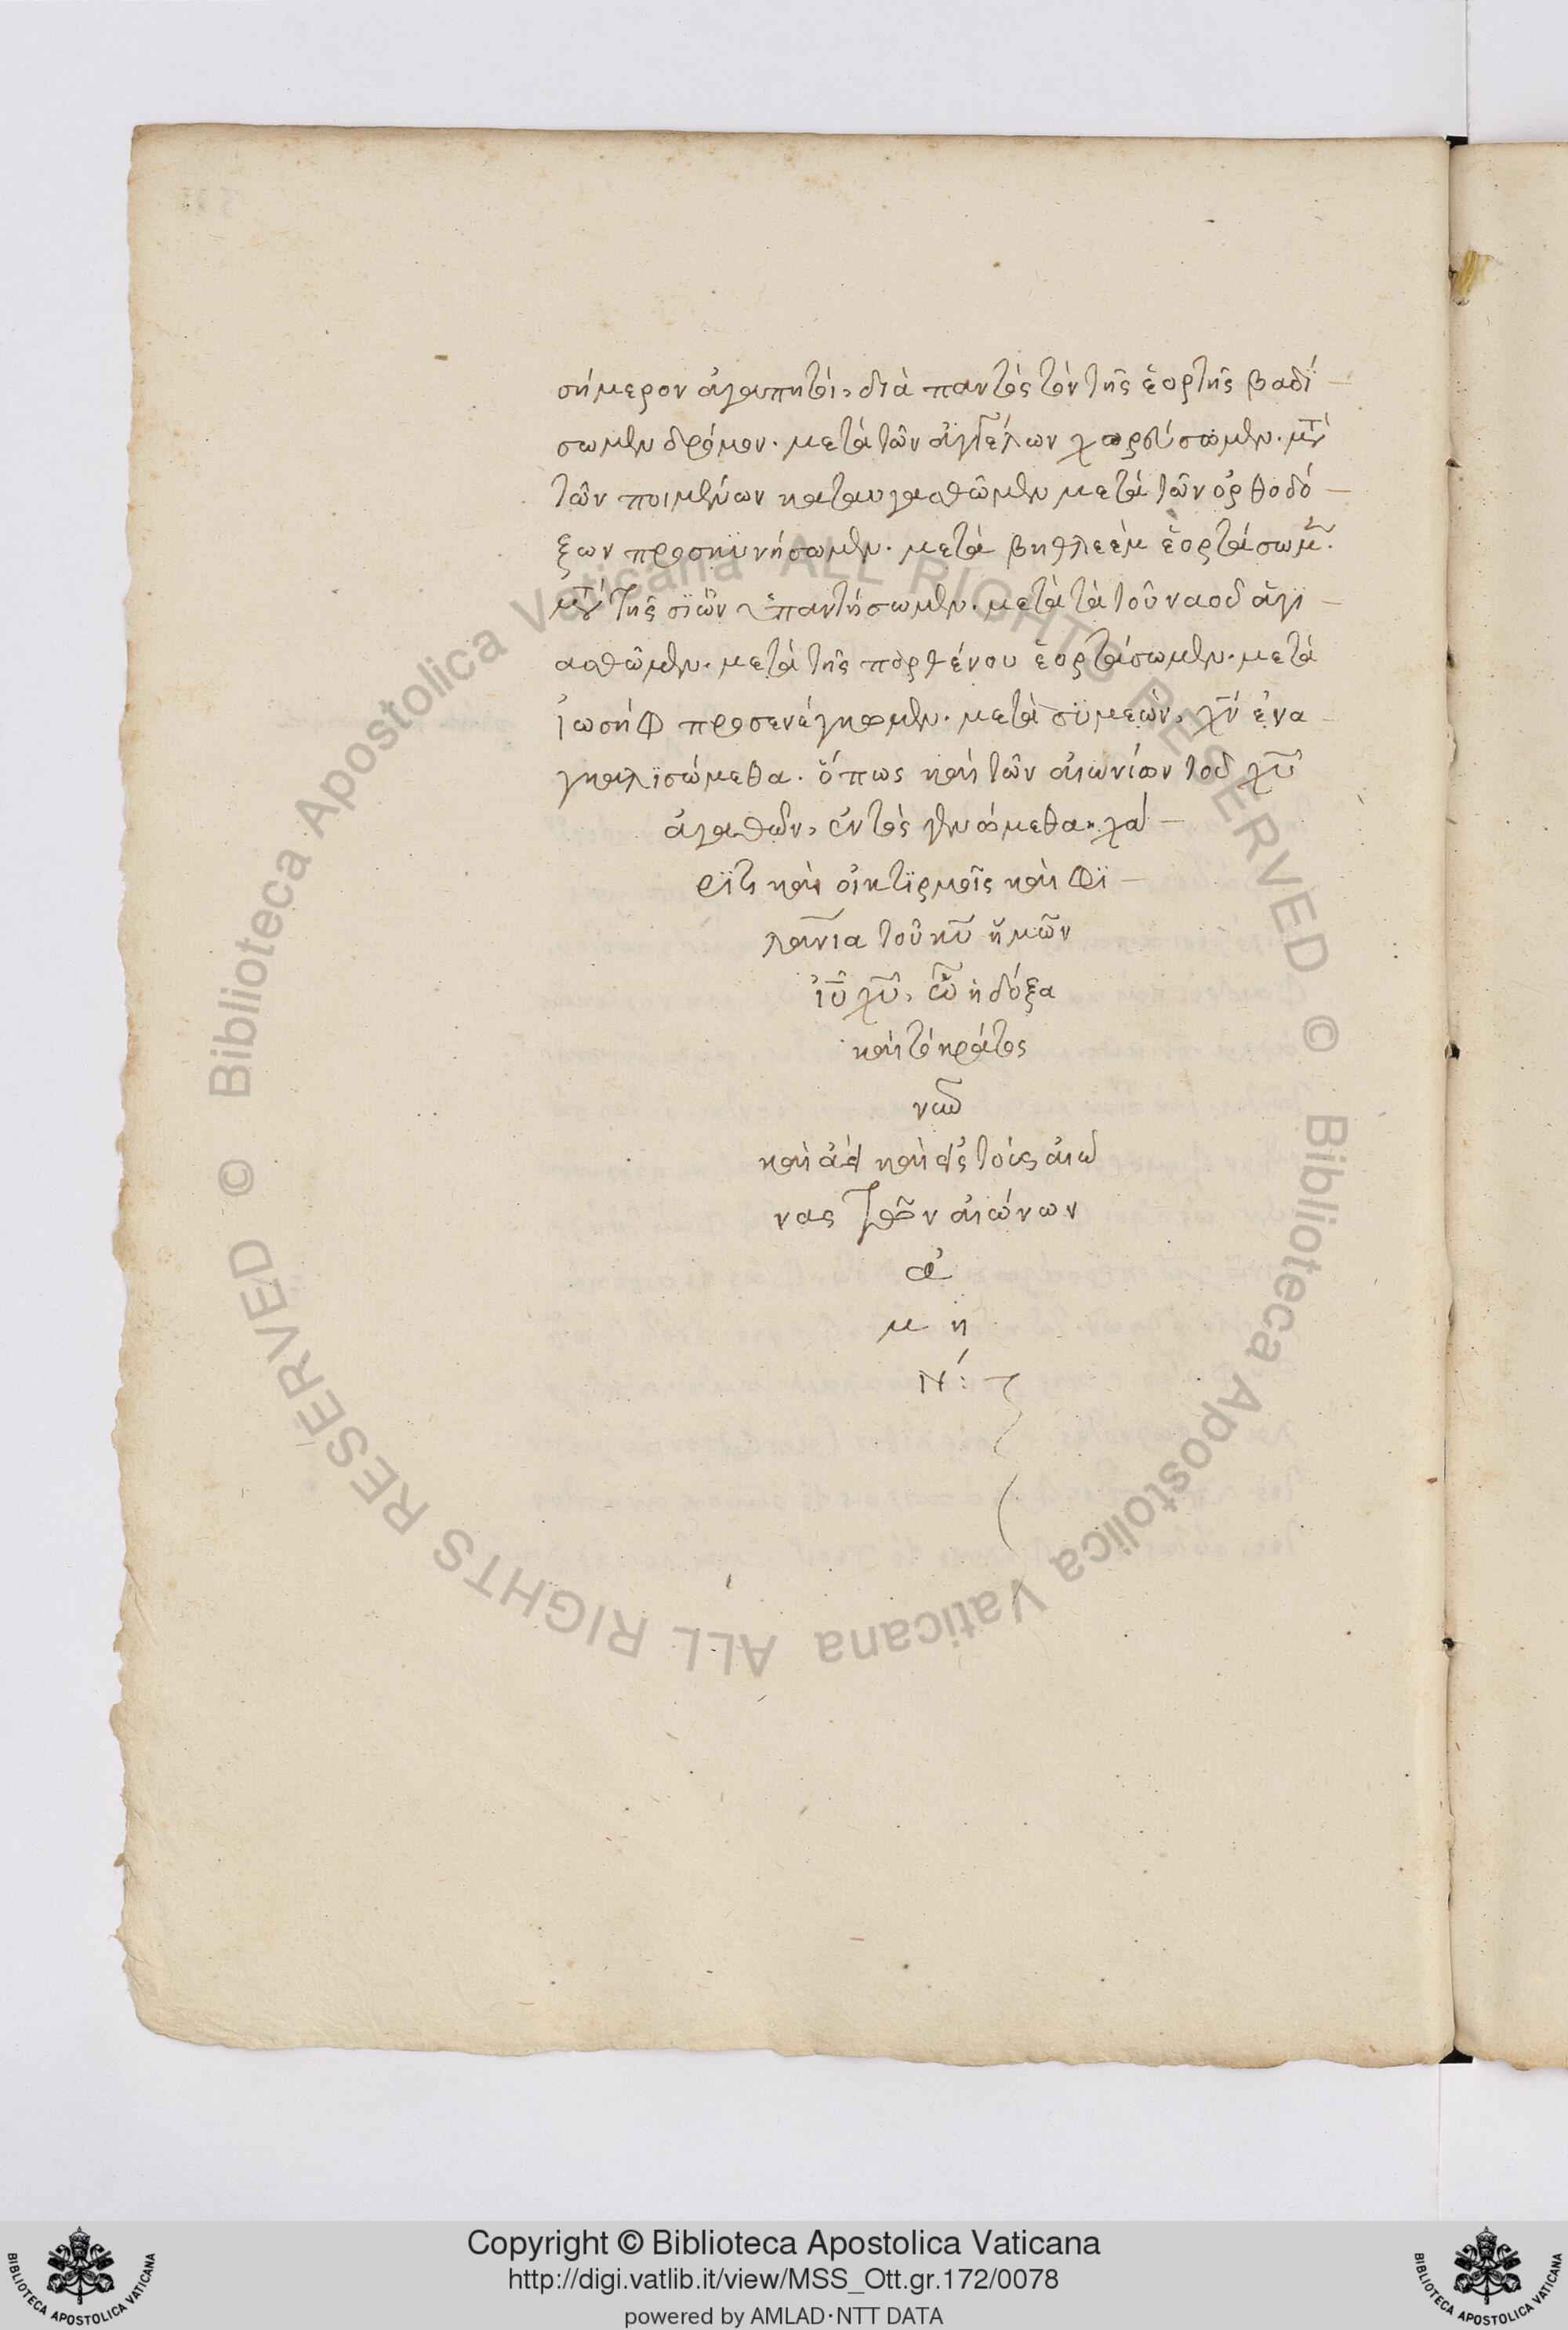 σήμερον ἀγαπητοί, διὰ παντὸς τὸν τῆς ἑορτῆς βαδί
σωμεν δρόμον. μετὰ τῶν ἀγγέλων χορεύσωμεν. μετὰ
τῶν ποιμένων καταυγασθῶμεν μετὰ τῶν ὀρθοδό
ξων προσκυνήσωμεν. μετὰ βηθλεὲμ ἑορτάσωμεν.
μετὰ τῆς σϊὼν ὑπαντήσωμεν. μετὰ τὰ τοῦ ναοῦ ἁγι
ασθῶμεν. μετὰ τῆς παρθένου ἑορτάσωμεν. μετὰ
ἰωσὴφ προσενέγκωμεν. μετὰ συμεὼν, χν ἐνα
γκαλϊσώμεθα. ὅπως καὶ τῶν αἰωνίων τοῦ χυ
ἀγαθῶν, ἐντὸς γενώμεθα. χά
ρϊτι καὶ οἰκτϊρμοῖς καὶ φϊ
λανια τοῦ κυ ἡμῶν
ἰυ χυ, ὧ ἡ δόξα
καὶ τὸ κράτος
νῦν
καὶ ἀεὶ καὶ εἰς τοὺς αἰῶ
νας τῶν αἰώνων
ἀ
μ ή
Ν:
Copyright © Biblioteca Apostolica Vaticana
http://digi.vatlib.it/view/MSS_Ott.gr.172/0078
powered by AMLAD·NTT DATA
© Biblioteca Apostolica Vaticana ALL RIGHTS RESERVED
© Biblioteca Apostolica Vaticana ALL RIGHTS RESERVED
BIBLIOTECA APOSTOLICA VATICANA
BIBLIOTECA APOSTOLICA VATICANA